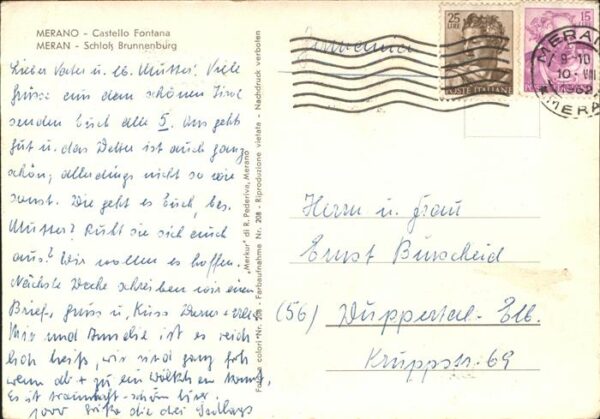 MERANO - Castello Fontana
MERAN - Schloß Brunnenburg
Lieber Vater u. lb. Mutter! Viele
Grüsse aus dem schönen Tirol
senden Euch alle 5. Uns geht
gut u. das Wetter ist auch ganz
schön, allerdings nicht so wie
sonst. Wie geht es Euch, bes.
Mutter? Ruht sie sich auch
aus? Wir wollen es hoffen.
Nächste Woche schreiben wir einen
Brief. Gruss u. Kuss
Mir und ist es reich
lich heiß, wir sind ganz froh
wenn ab + zu ein Wölkchen kommt.
Es ist traumhaft schön hier.
1000 Grüße die drei
"Merkur" di R. Pederiva, Merano
Foto a colori Nr. 208 - Farbaufnahme Nr. 208 - Riproduzione vietata - Nachdruck verboten
Germania
25
LIRE
POSTE ITALIANE
15
LIRE
MERANO
9-10
10. VIII
1963
MERANO
Herrn u. Frau
Ernst Burscheid
(56) Wuppertal-Elb.
Kruppstr. 69